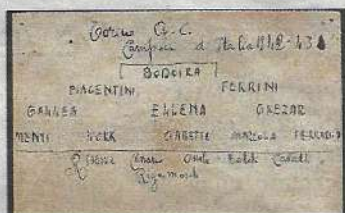 Torino A.C.
Campioni d'Italia 1942-43
BODOIRA
PIACENTINI FERRINI
GALLEA ELLENA GREZAR
MENTI GABETTO MAZZOLA FERRARIS
Riserve Cavalli
Rigamonti